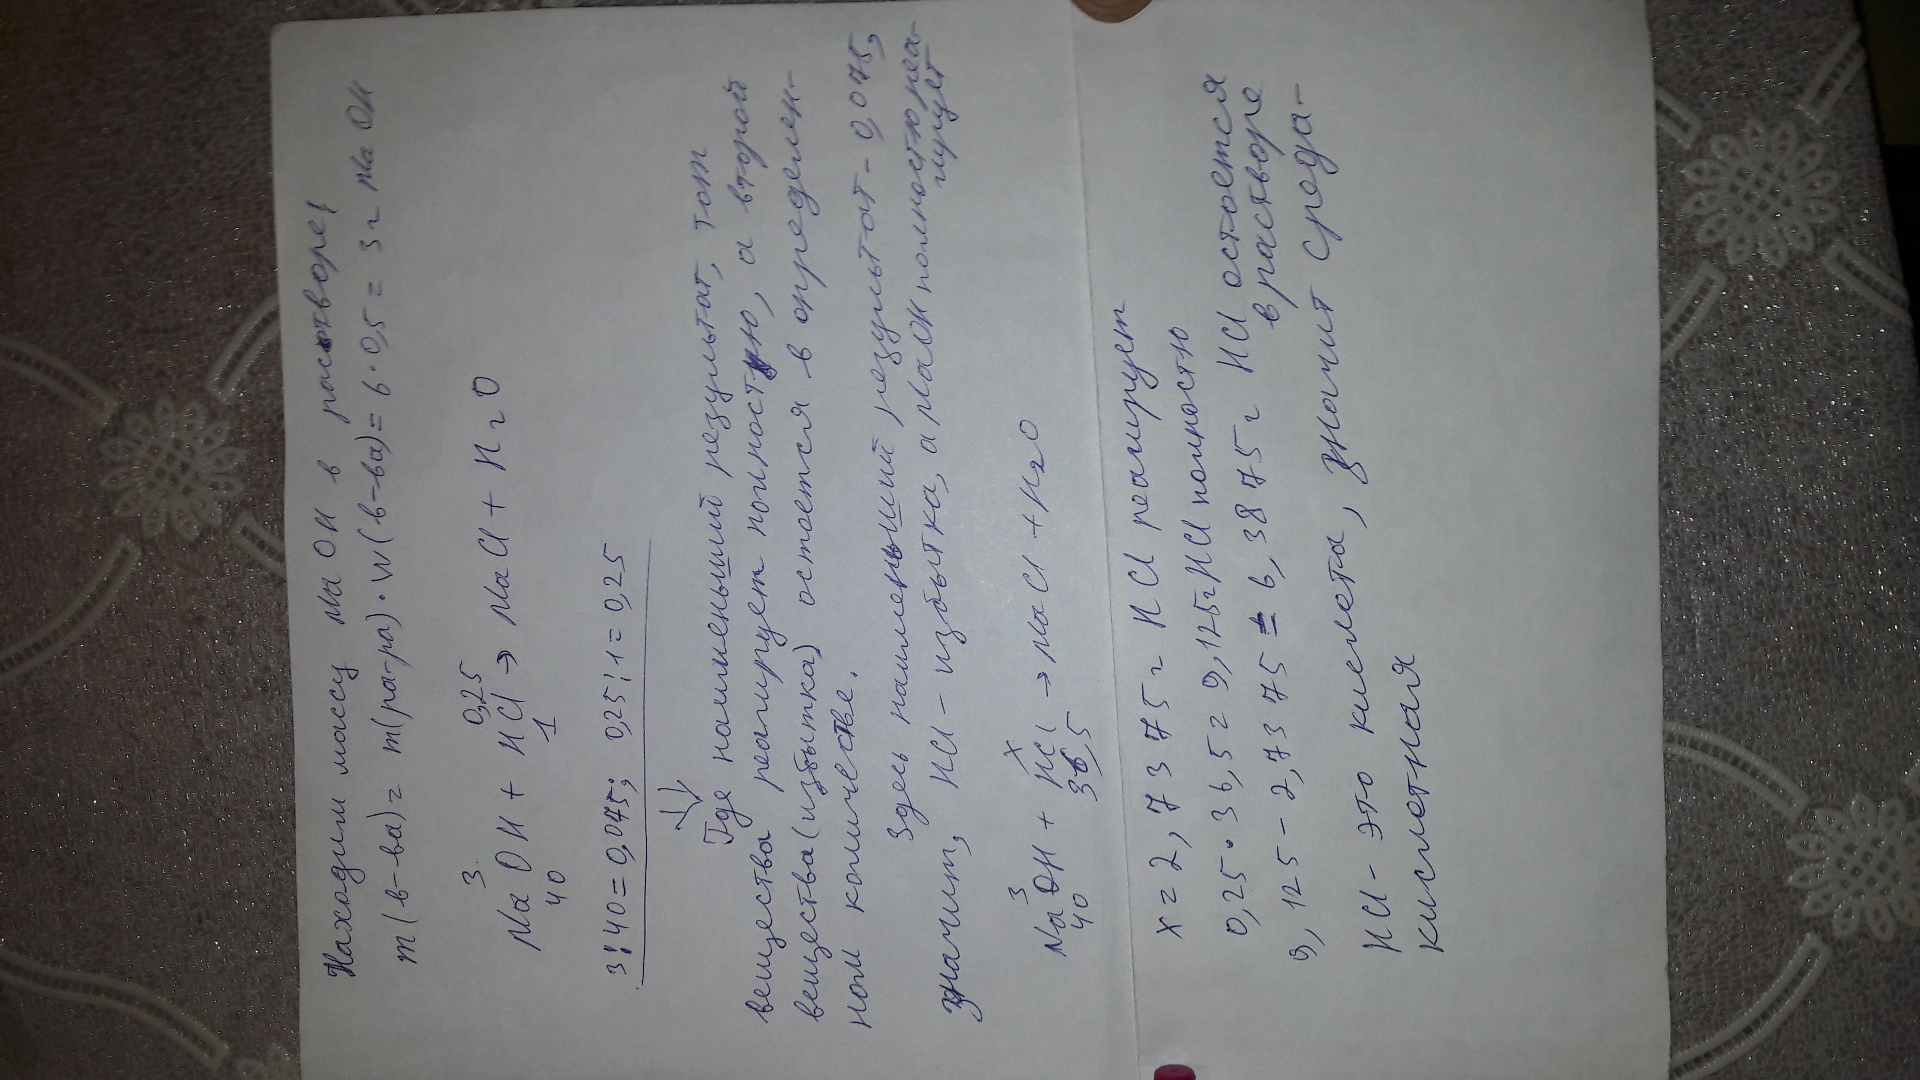 Находим массу NaOH в растворе;
m(в-ва)= m(ра-ра)·W(в-ва)= 6·0,5= 3г NaOH
3 0,25
NaOH + HCl → NaCl + H2O
40 1
3:40=0,075; 0,25:1=0,25
Где наименьший результат, тот
вещества реагирует полностую, а второй
вещества(избытка) остоется в определен-
ном количестве.
Здесь наименьший результат-0,075,
значит, HCl-избытка, а NaOH полностью реа-
гирует
3 x
NaOH + HCl → NaCl + H2O
40 36,5
x=2,7375г HCl реагирует
0,25·36,5=9,125г HCl полностю
9,125-2,7375=6,3875г HCl остоется
в растворе
HCl-это кислота, значит среда-
кислотная